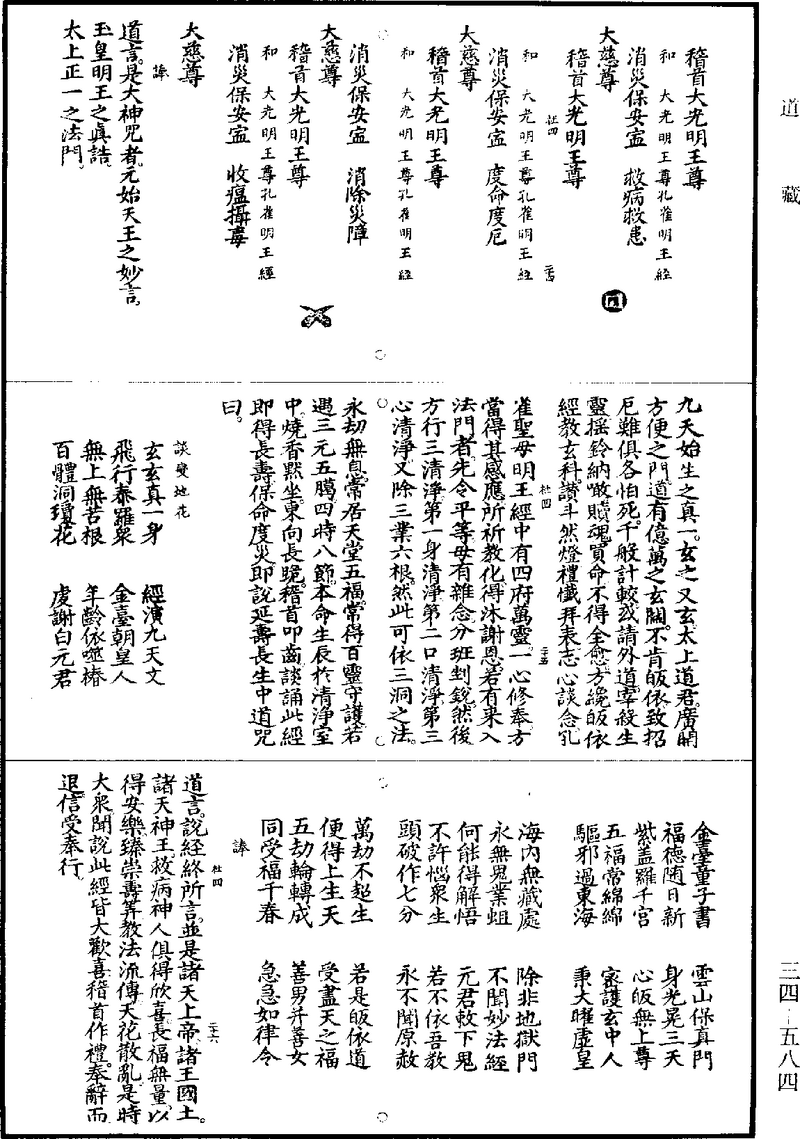 道藏
稽首大光明王尊
和　大光明王尊孔雀明王經
消災保安寍　救病救患
大慈尊
稽首大光明王尊
杜四
和　大光明王尊孔雀明王經
消災保安寍　度命度厄
大慈尊
稽首大光明王尊
和　大光明王尊孔雀明王經
消災保安寍　消除災障
大慈尊
稽首大光明王尊
和　大光明王尊孔雀明王經
消災保安寍　收瘟攝毒
大慈尊
諱
道言是大神咒者元始天王之妙言
玉皇明王之眞誥
太上正一之法門
九天始生之真一玄之又玄太上道君廣開
方便之門道有億萬之玄關不肯皈依致招
厄難俱各怕死千般計較或請外道宰殺生
靈搖鈴納呶贖魂買命不得全愈方纔皈依
經教玄科讚斗然燈禮懺拜表志心談念孔
杜四
二十五
雀聖母明王經中有四府萬靈一心修奉方
當得其感應所祈教化得沐謝恩若有來入
法門者先令平等毋有雜念分班剖銳然後
方行三清淨第一身清淨第二口清淨第三
心清淨又除三業六根然此可依三洞之法
永劫無息常居天堂五福常得百靈守護若
遇三元五臈四時八節本命生辰於清淨室
中燒香黙坐東向長跪稽首叩齒談誦此經
即得長壽保命度災即說延壽長生中道咒
曰
談變地花
玄玄真一身　經演九天文
飛行泰羅衆　金臺朝皇人
無上無苦根　年齡依噬椿
百體洞瓊花　虔謝白元君
金臺童子書　雲山保真門
福德随日新　身光晃三天
紫蓋羅千宫　心皈無上尊
五福常綿綿　密護玄中人
驅邪過東海　秉大曜虛皇
海內無藏處　除非地獄門
永無鬼業蛆　不聞妙法經
何能得解悟　元君敕下鬼
不許惱衆生　若不依吾敎
頭破作七分　永不聞原赦
萬劫不超生　若是皈依道
便得上生天　受盡天之福
五劫輪轉成　善男并善女
同受福千春　急急如律令
諱
杜四
二十六
道言說經終所言並是諸天上帝諸王國土
諸天神王救病神人俱得欣喜長福無量以
得安樂臻崇壽筭教法流傳天花散亂是時
大衆聞說此經皆大歡喜稽首作禮奉辭而
退信受奉行
三四—五八四